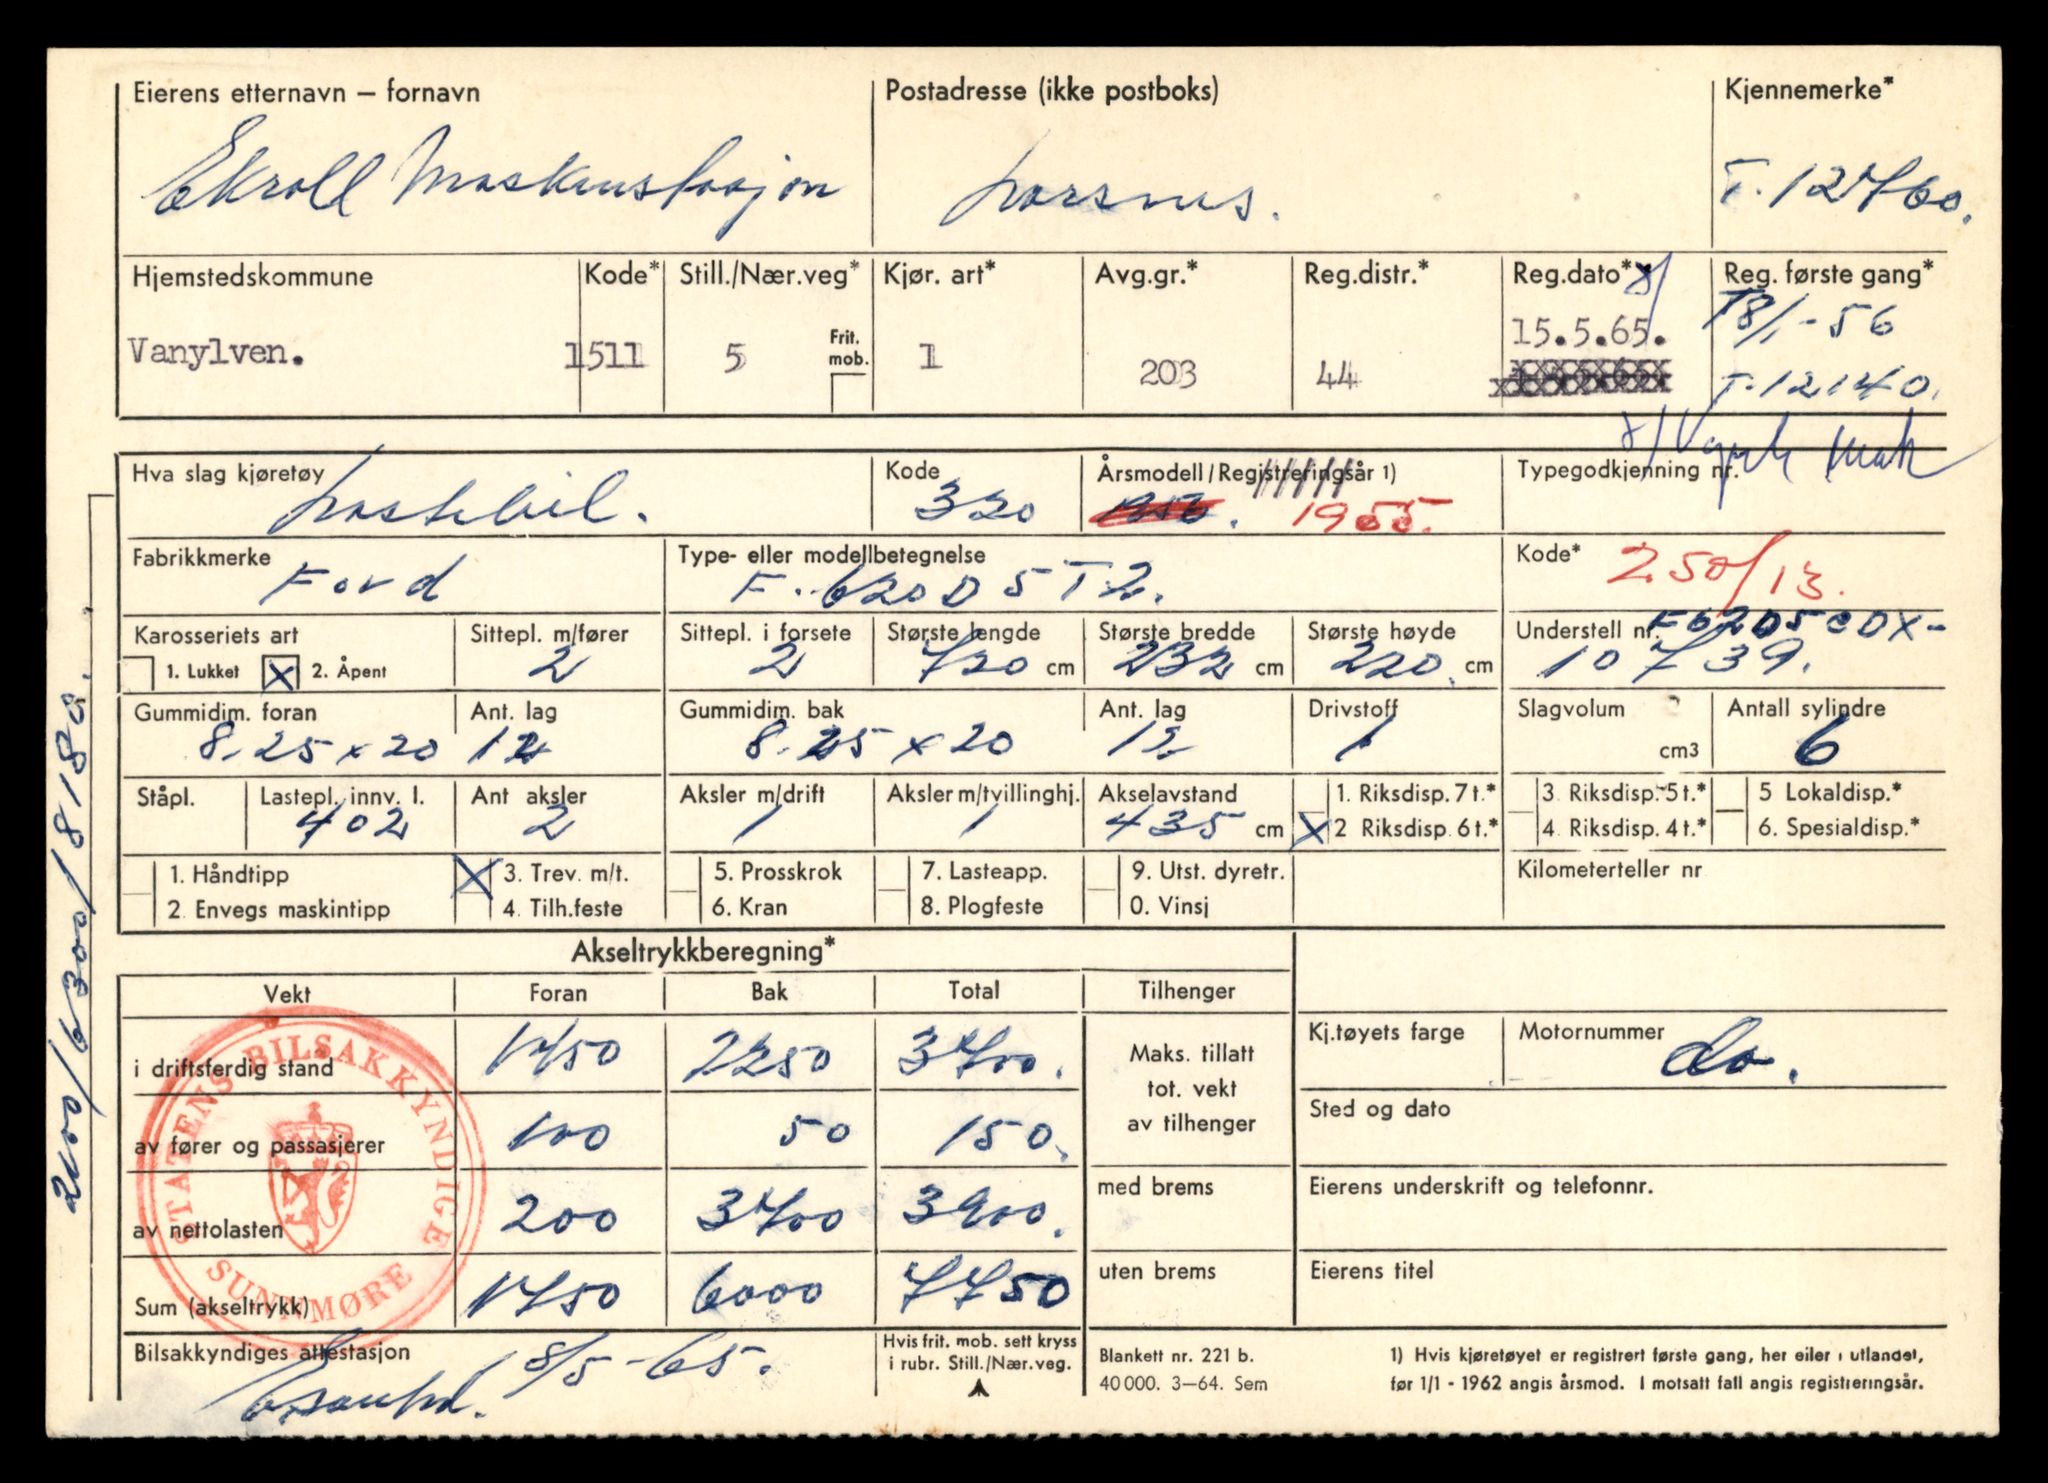 Eierens etternavn – fornavn
Postadresse (ikke postboks)
Kjennemerke*
Ekroll Maskinstasjon
Larsnes.
T-12760.
Hjemstedskommune
Kode*
Still./Nær.veg*
Kjør. art*
Avg.gr.*
Reg.distr.*
Reg.dato* x/
Reg. første gang*
Vanylven.
1511
5
Frit. mob.
1
203
44
15.5.65.
18/1-56
T-12140.
Hva slag kjøretøy
Kode
Årsmodell/Registreringsår 1)
Typegodkjenning nr.
x/
Lastebil.
320
1956.
1955.
Fabrikkmerke
Type- eller modellbetegnelse
Kode*
Ford
F-620D5T2.
250/13.
Karosseriets art
Sittepl. m/fører
Sittepl. i forsete
Største lengde
Største bredde
Største høyde
Understell nr.
1. Lukket
X 2. Åpent
2
2
720 cm
232 cm
220 cm
F62D5CDX-
10739.
Gummidim. foran
Ant. lag
Gummidim. bak
Ant. lag
Drivstoff
Slagvolum
Antall sylindre
8.25 x 20
12
8.25 x 20
12
1
cm3
6
Ståpl.
Lastepl. innv. l.
Ant aksler
Aksler m/drift
Aksler m/tvillinghj.
Akselavstand
1. Riksdisp. 7 t.*
3. Riksdisp. 5 t.*
5 Lokaldisp.*
402
2
1
1
435 cm
X 2 Riksdisp. 6 t.*
4. Riksdisp. 4 t.*
6. Spesialdisp.*
1. Håndtipp
X 3. Trev. m/t.
5. Prosskrok
7. Lasteapp.
9. Utst. dyretr.
Kilometerteller nr
2. Envegs maskintipp
4. Tilh.feste
6. Kran
8. Plogfeste
0. Vinsj
Akseltrykkberegning*
Vekt
Foran
Bak
Total
Tilhenger
i driftsferdig stand
1450
2250
3700.
Maks. tillatt
tot. vekt
av tilhenger
Kj.tøyets farge
Motornummer
do.
av fører og passasjerer
100
50
150.
Sted og dato
av nettolasten
200
3700
3900.
med brems
Eierens underskrift og telefonnr.
Sum (akseltrykk)
1750
6000
7750
uten brems
Eierens titel
STATENS BILSAKKYNDIGE
SUNNMØRE
Bilsakkyndiges attestasjon
8/5-65.
Hvis frit. mob. sett kryss
i rubr. Still./Nær.veg.
Blankett nr. 221 b.
40 000. 3–64. Sem
1) Hvis kjøretøyet er registrert første gang, her eiler i utlandet,
før 1/1 - 1962 angis årsmod. I motsatt fall angis registreringsår.